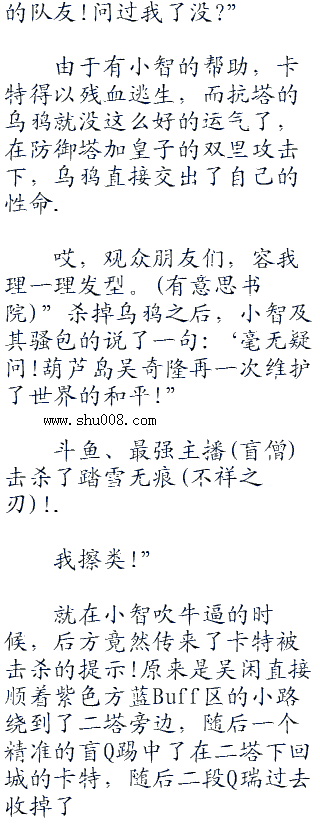 的队友!问过我了没?”
由于有小智的帮助，卡
特得以残血逃生，而抗塔的
乌鸦就没这么好的运气了，
在防御塔加皇子的双里攻击
下，乌鸦直接交出了自己的
性命.
哎，观众朋友们，容我
理一理发型。(有意思书
院)”杀掉乌鸦之后，小智及
其骚包的说了一句:‘毫无疑
问!葫芦岛吴奇隆再一次维护
了世界的和平!”
www.shu008.com
斗鱼、最强主播(盲僧)
击杀了踏雪无痕(不祥之
刃)!.
我擦类!”
就在小智吹牛逼的时
候，后方竟然传来了卡特被
击杀的提示!原来是吴闲直接
顺着紫色方蓝Buff区的小路
绕到了二塔旁边，随后一个
精准的盲Q踢中了在二塔下回
城的卡特，随后二段Q瑞过去
收掉了